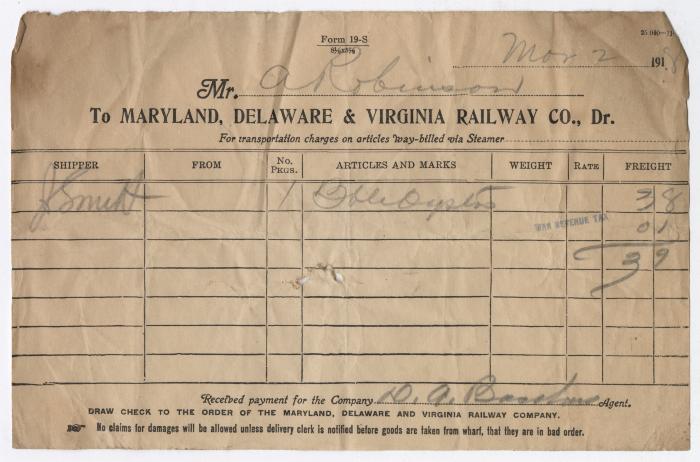 Form 19-S
8½x5½
25,000—11-
Mar 2 1918
Mr. A Robinson
To MARYLAND, DELAWARE & VIRGINIA RAILWAY CO., Dr.
For transportation charges on articles way-billed via Steamer
SHIPPER FROM No. PKGS. ARTICLES AND MARKS WEIGHT RATE FREIGHT
J Smith 1 Bble Oysters 38
WAR REVENUE TAX 01
39
Received payment for the Company D. A. Agent.
DRAW CHECK TO THE ORDER OF THE MARYLAND, DELAWARE AND VIRGINIA RAILWAY COMPANY.
No claims for damages will be allowed unless delivery clerk is notified before goods are taken from wharf, that they are in bad order.